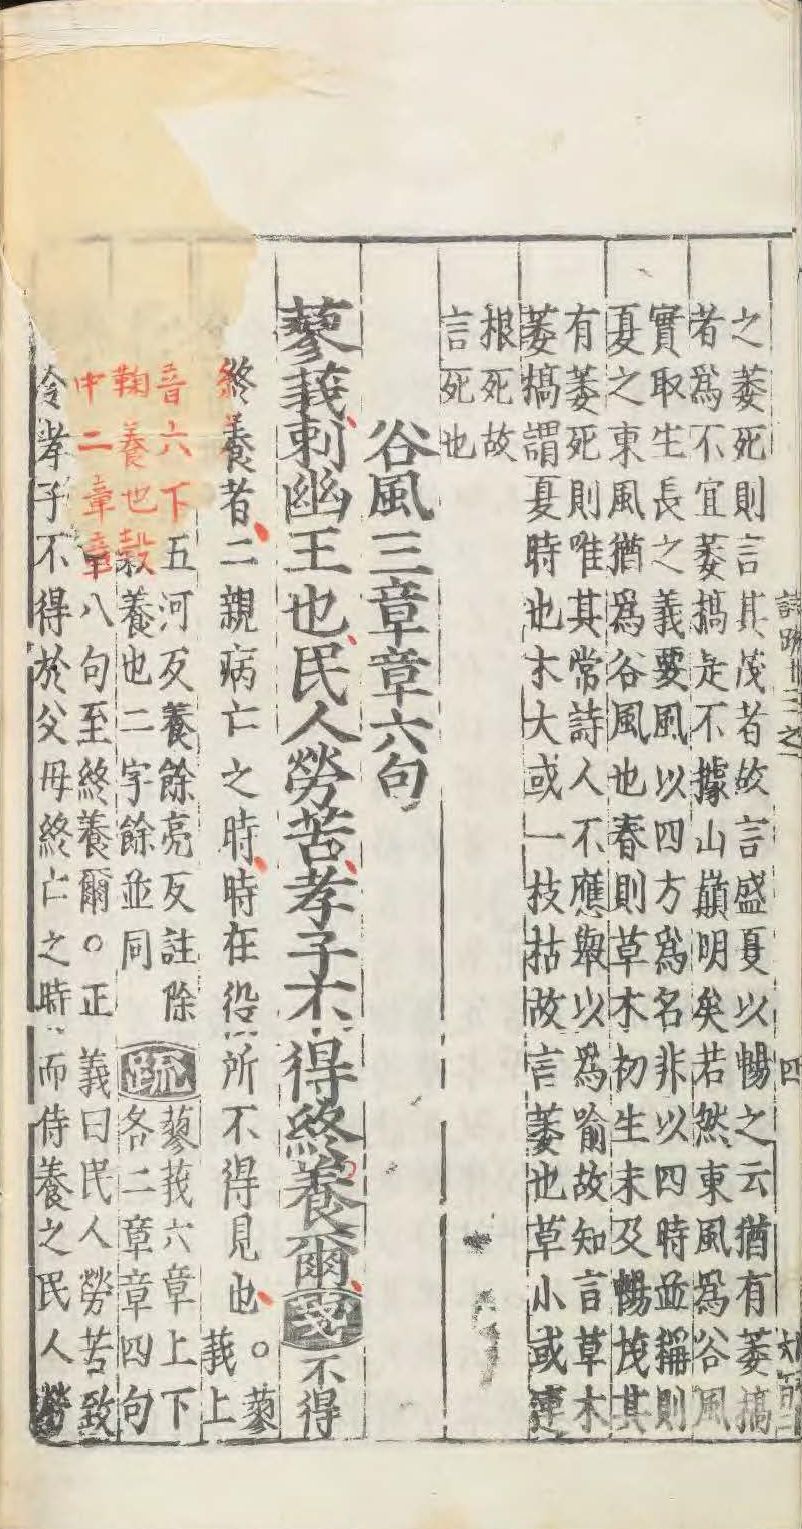 詩疏十三之一
四
之萎死則言其茂者故言盛夏以暢之云猶有萎槁
者爲不宜萎槁足不據山巔明矣若然東風爲谷風
實取生長之義要風以四方爲名非以四時並稱則
夏之東風猶爲谷風也春則草木初生未及暢茂其
有萎死則唯其常詩人不應舉以爲喻故知言草木
萎槁謂夏時也木大或一枝枯故言萎也草小或連
根死故
言死也
谷風三章章六句
蓼莪刺幽王也民人勞苦孝子不得終養爾
箋
不得
終養者二親病亡之時時在役所不得見也
。蓼
莪上
音六下五河反養餘亮反註除
鞠養也穀養也二字餘並同
疏
蓼莪六章上下
各二章章四句
中二章章八句至終養爾。正義曰民人勞苦致
令孝子不得於父母終亡之時而侍養之民人勞